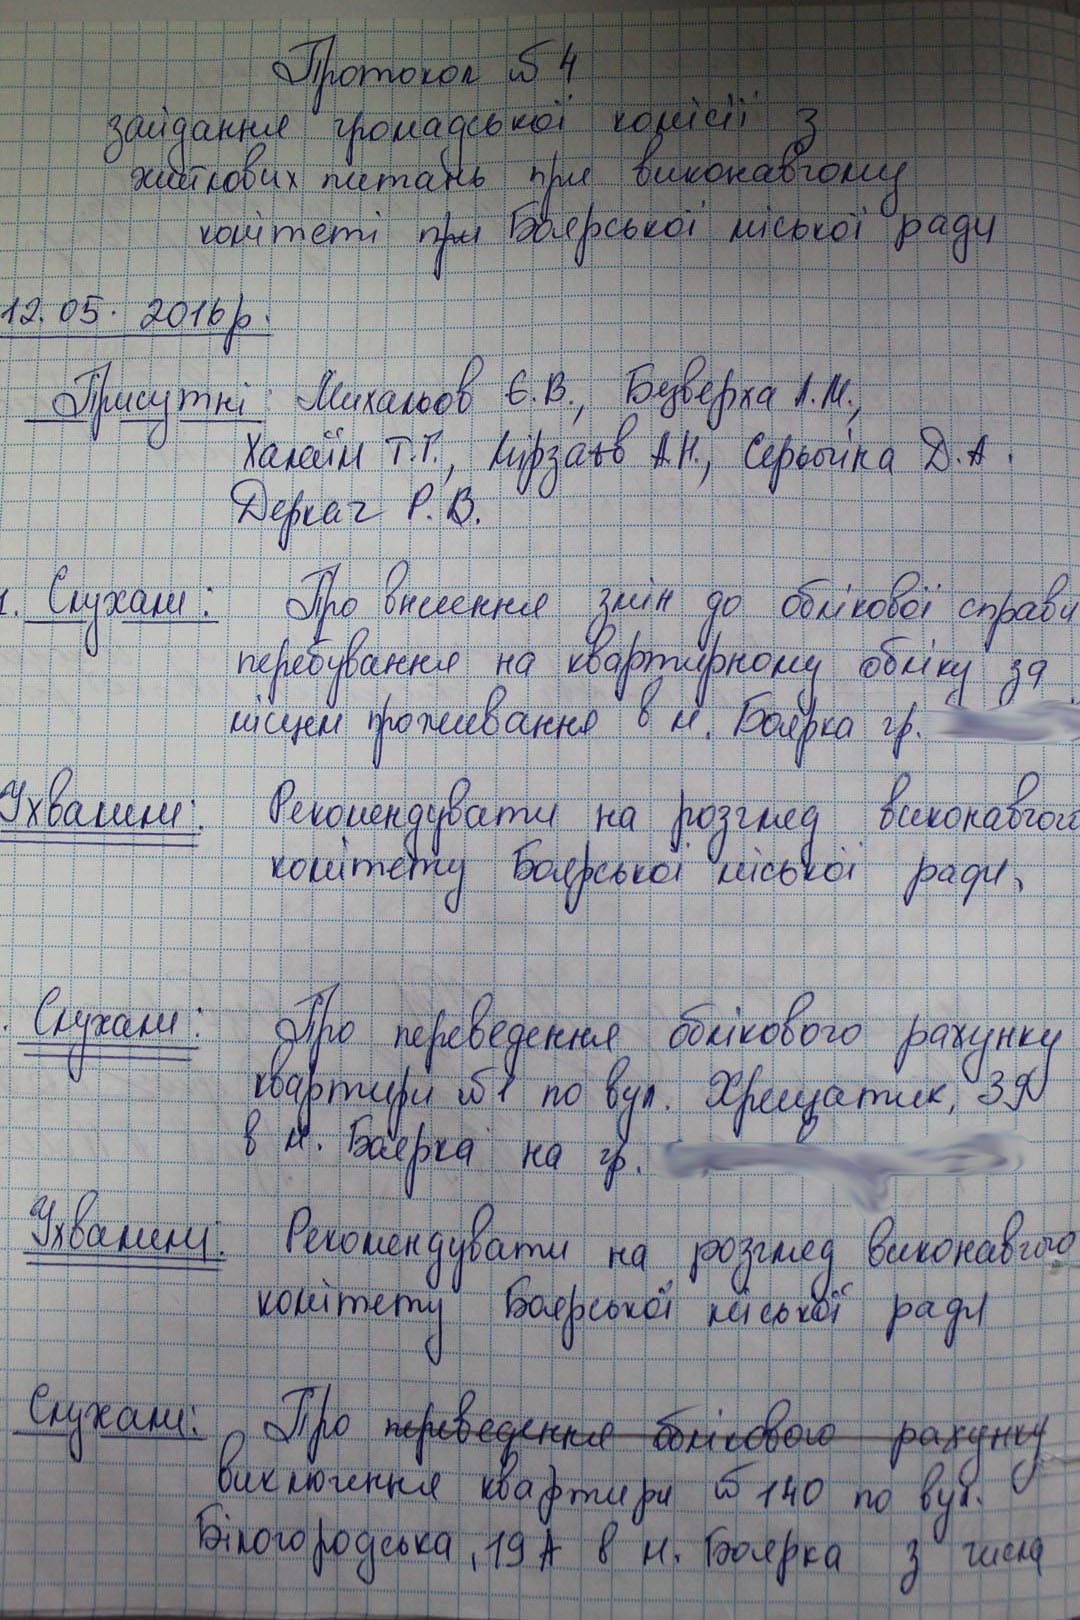 Протокол №4
засідання громадської комісії з
житлових питань при виконавчому
комітеті при Боярської міської ради
12.05.2016р.
Присутні: Михальов Є.В., Бузверха Л.М.,
Халаїм Т.Г., Мірзаєв А.Н., Серьогіна Д.А.
Деркач Р.В.
1. Слухали: Про внесення змін до облікової справи
перебування на квартирному обліку за
місцем проживання в м. Боярка гр.
Ухвалили: Рекомендувати на розгляд виконавчого
комітету Боярської міської ради.
Слухали: Про переведення облікового рахунку
квартири №1 по вул. Хрещатик, 39
в м. Боярка на гр.
Ухвалили: Рекомендувати на розгляд виконавчого
комітету Боярської міської ради
Слухали: Про переведення облікового рахунку
виключення квартири №140 по вул.
Білогородська, 19А в м. Боярка з числа